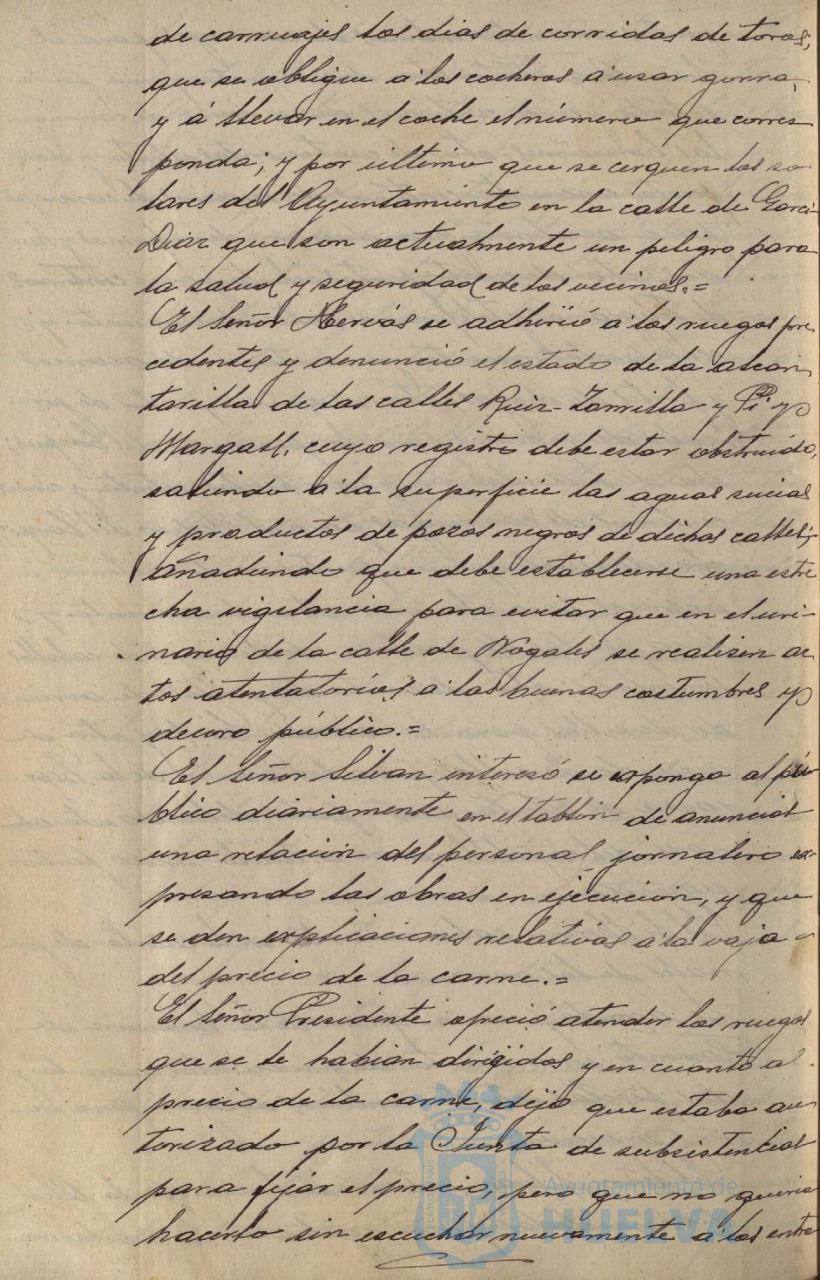 de carruajes los dias de corridas de toros;
que se obligue a los cocheros á usar gorra,
y á llevar en el coche el número que corres
ponda; y por ultimo que se cerquen los so
lares del Ayuntamiento en la calle de Garci
Diaz que son actualmente un peligro para
la salud y seguridad de los vecinos.=
El Señor Hervás se adhirió á los ruegos pre
cedentes y denunció el estado de la alcan
tarilla de las calles Ruiz-Zorrilla y Pi y
Margall, cuyo registro debe estar obstruido,
saliendo a la superficie las aguas sucias
y productos de pozos negros de dichas calles;
añadiendo que debe establecerse una estre
cha vigilancia para evitar que en el uri-
nario de la calle de Nogales se realicen ac
tos atentatorios a las buenas costumbres y
decoro público.=
El Señor Silvan interesó se exponga al pú
blico diariamente en el tablón de anuncios
una relación del personal jornalero ex-
presando las obras en ejecución, y que
se den explicaciones relativas a la vaja
del precio de la carne.=
El Señor Presidente ofreció atender los ruegos
que se le habian dirigidos y en cuanto al
precio de la carne, dijo que estaba au
torizado por la Junta de subsistencias
para fijar el precio, pero que no queria
hacerlo sin escuchar nuevamente a los entra
Ayuntamiento de
HUELVA